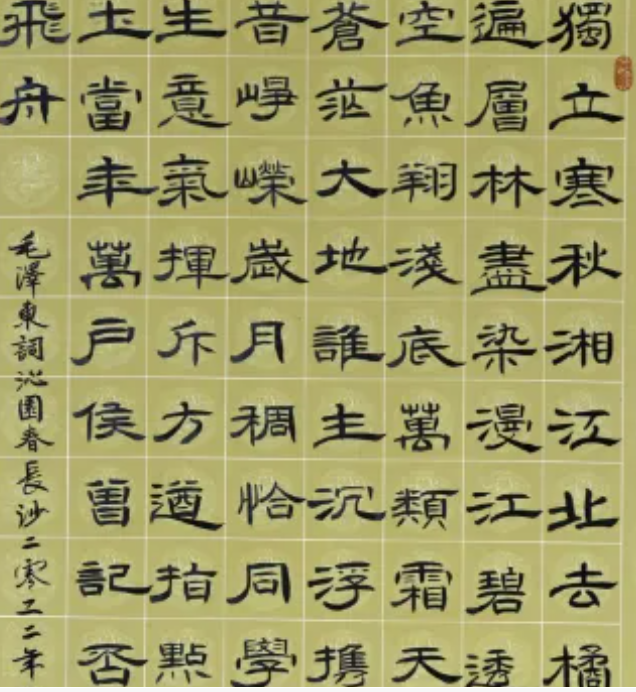 獨立寒秋湘江北去橘
遍層林盡染漫江碧透
空魚翔淺底萬類霜天
蒼茫大地誰主沉浮攜
昔崢嶸歲月稠恰同學
生意氣揮斥方遒指點
土當年萬戶侯曾記否
飛舟
毛澤東詞沁園春長沙二零二二年